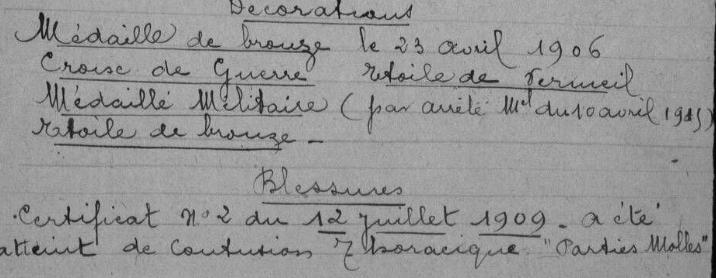 Décorations
Médaille de bronze le 23 avril 1906
Croix de Guerre Etoile de Vermeil
Médaille Militaire (par arrêté Mel du 10 avril 1915)
Etoile de bronze -
Blessures
.Certificat No 2 du 12 juillet 1909 - a été
atteint de Contusion Thoracique "Parties Molles"